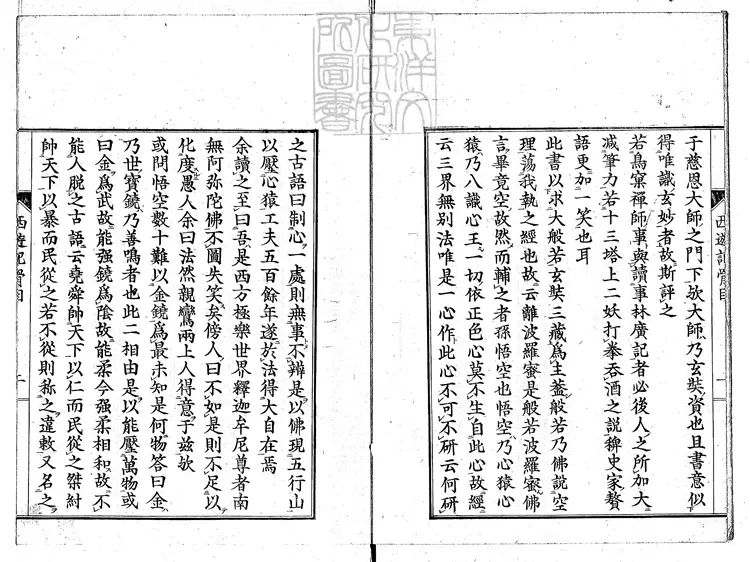 于慈恩大師之門下欤大師乃玄奘資也且書意似
得唯識玄妙者故斯評之
若鳥窠禪師事與讀事林廣記者必後人之所加大
减筆力若十三塔上二妖打拳吞酒之說稗史家贅
語更加一笑也耳
此書以求大般若玄奘三藏爲主蓋般若乃佛說空
理蕩我執之經也故云離波羅蜜是般若波羅蜜佛
言畢竟空故然而輔之者孫悟空也悟空乃心猿心
猿乃八識心王一切依正色心莫不生自此心故經
云三界無別法唯是一心作此心不可不研云何研
之古語曰制心一處則無事不辨是以佛現五行山
以壓心猿工夫五百餘年遂於法得大自在焉
余讀之至曰吾是西方極樂世界釋迦牟尼尊者南
無阿弥陀佛不圖失笑矣傍人曰不如是則不足以
化度愚人余曰法然親鸞兩上人得意于茲欤
或問悟空數十難以金鐃爲最未知是何物答曰金
乃世寶鐃乃善鳴者也此二相由是以能壓萬物或
曰金爲武故能强鐃爲陰故能柔今强柔相和故不
能人脱之古語云堯舜帥天下以仁而民從之桀紂
帥天下以暴而民從之若不從則称之違敕又名之
西遊記骨目
一
西遊記骨目